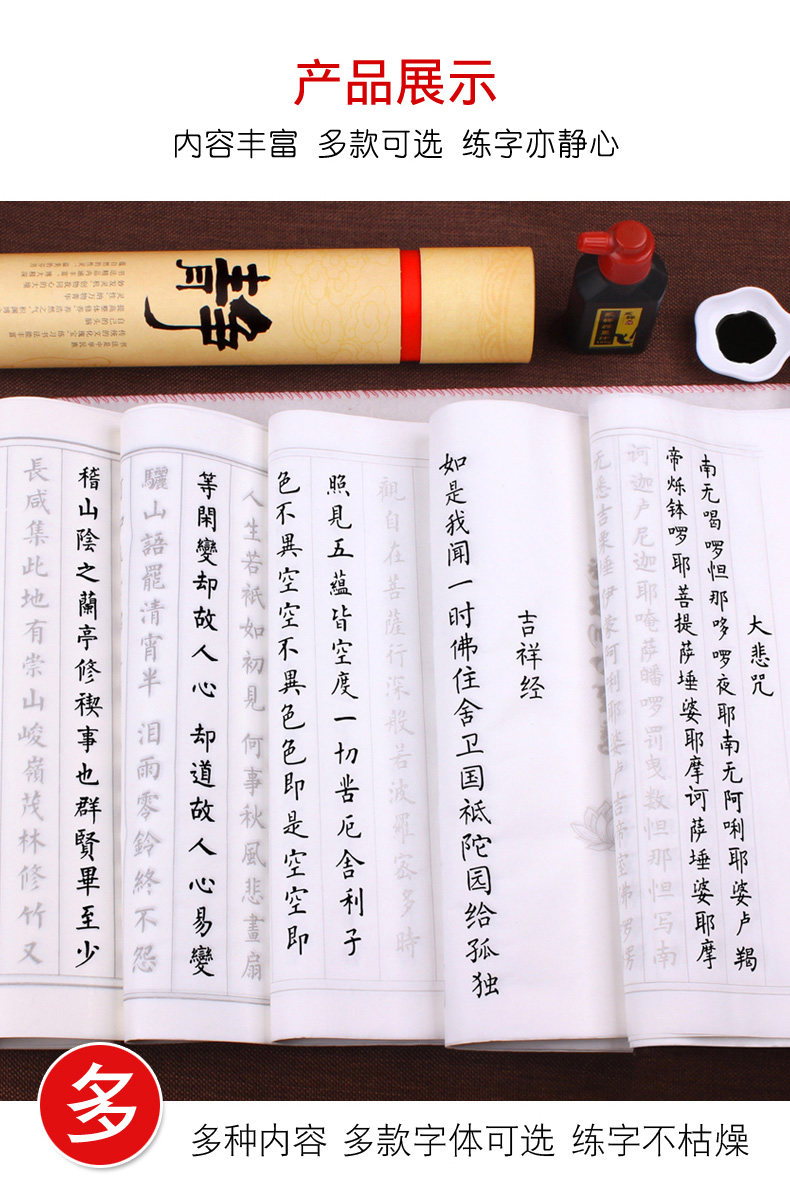 产品展示
内容丰富 多款可选 练字亦静心
靜
大悲咒
南无喝啰怛那哆啰夜耶南无阿唎耶婆卢羯
帝烁钵啰耶菩提萨埵婆耶摩诃萨埵婆耶摩
诃迦卢尼迦耶唵萨皤啰罚曳数怛那怛写南
无悉吉栗埵伊蒙阿利耶婆卢吉帝室佛啰楞
吉祥经
如是我闻一时佛住舍卫国祗陀园给孤独
觀自在菩薩行深般若波羅蜜多時
照見五蘊皆空度一切苦厄舍利子
色不異空空不異色色即是空空即
人生若衹如初見 何事秋風悲畫扇
等閑變却故人心 却道故人心易變
驪山語罷清宵半 泪雨零鈴終不怨
稽山陰之蘭亭修禊事也群賢畢至少
長咸集此地有崇山峻嶺茂林修竹又
多
多种内容 多款字体可选 练字不枯燥